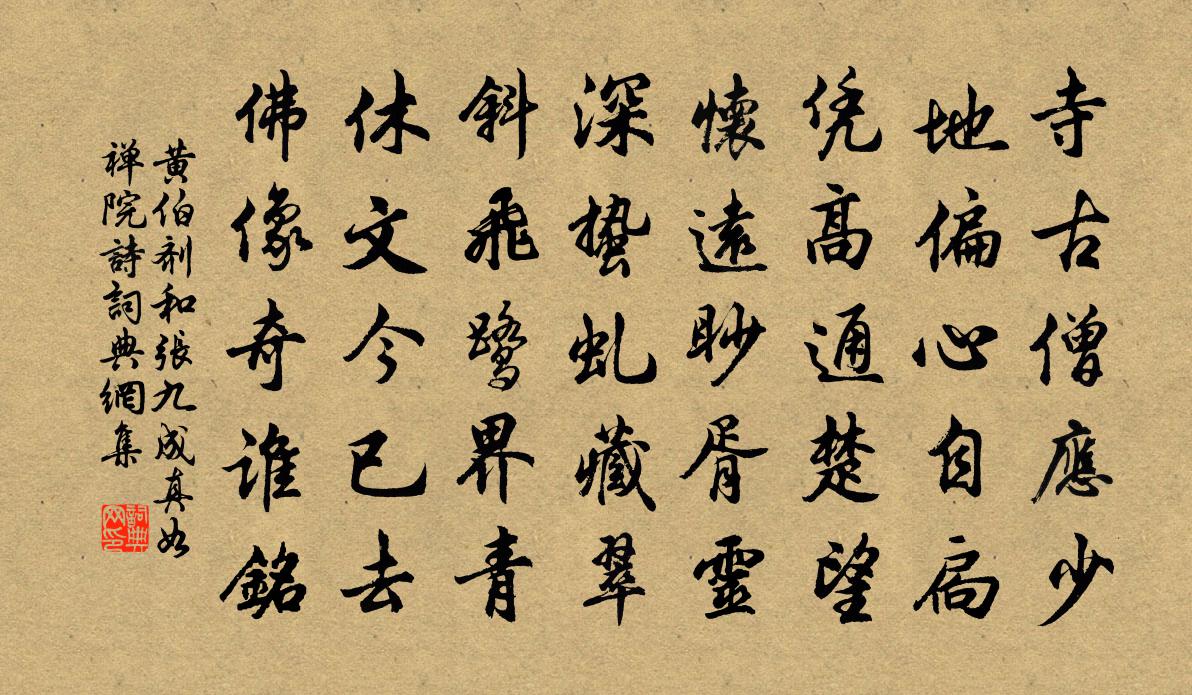 寺古僧應少
地偏心自扃
凭高通楚望
懷遠眇胥靈
深蟄虬藏翠
斜飛鹭界青
休文今已去
佛像奇谁銘
黄伯剂和張九成真如
禅院詩詞典網集
詞典网印